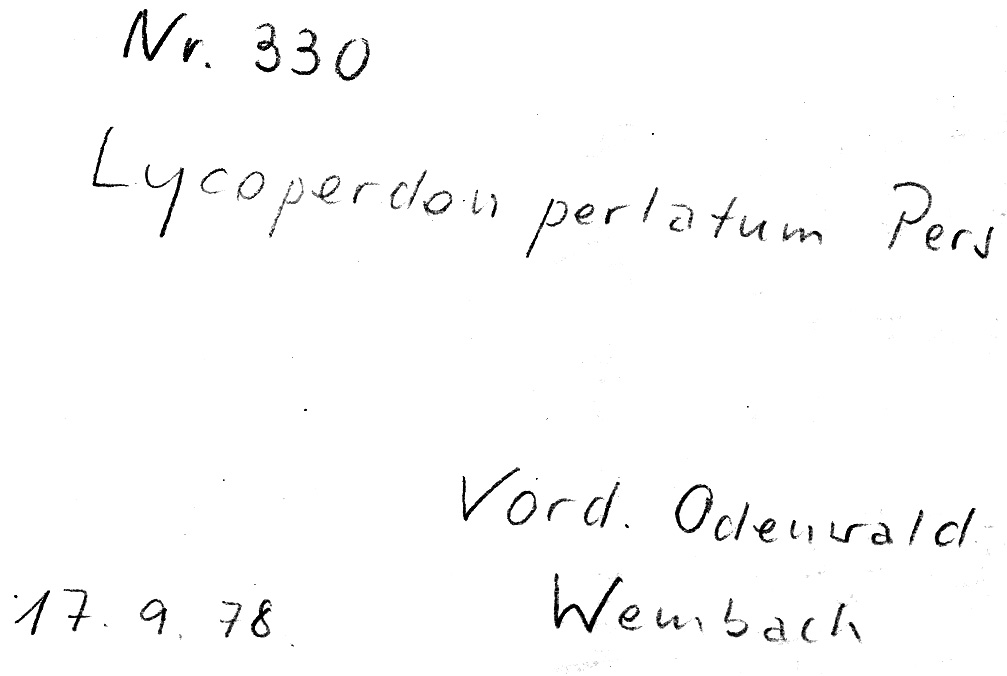 Nr. 330
Lycoperdon perlatum Pers
Vord. Odenwald
17. 9. 78. Wembach